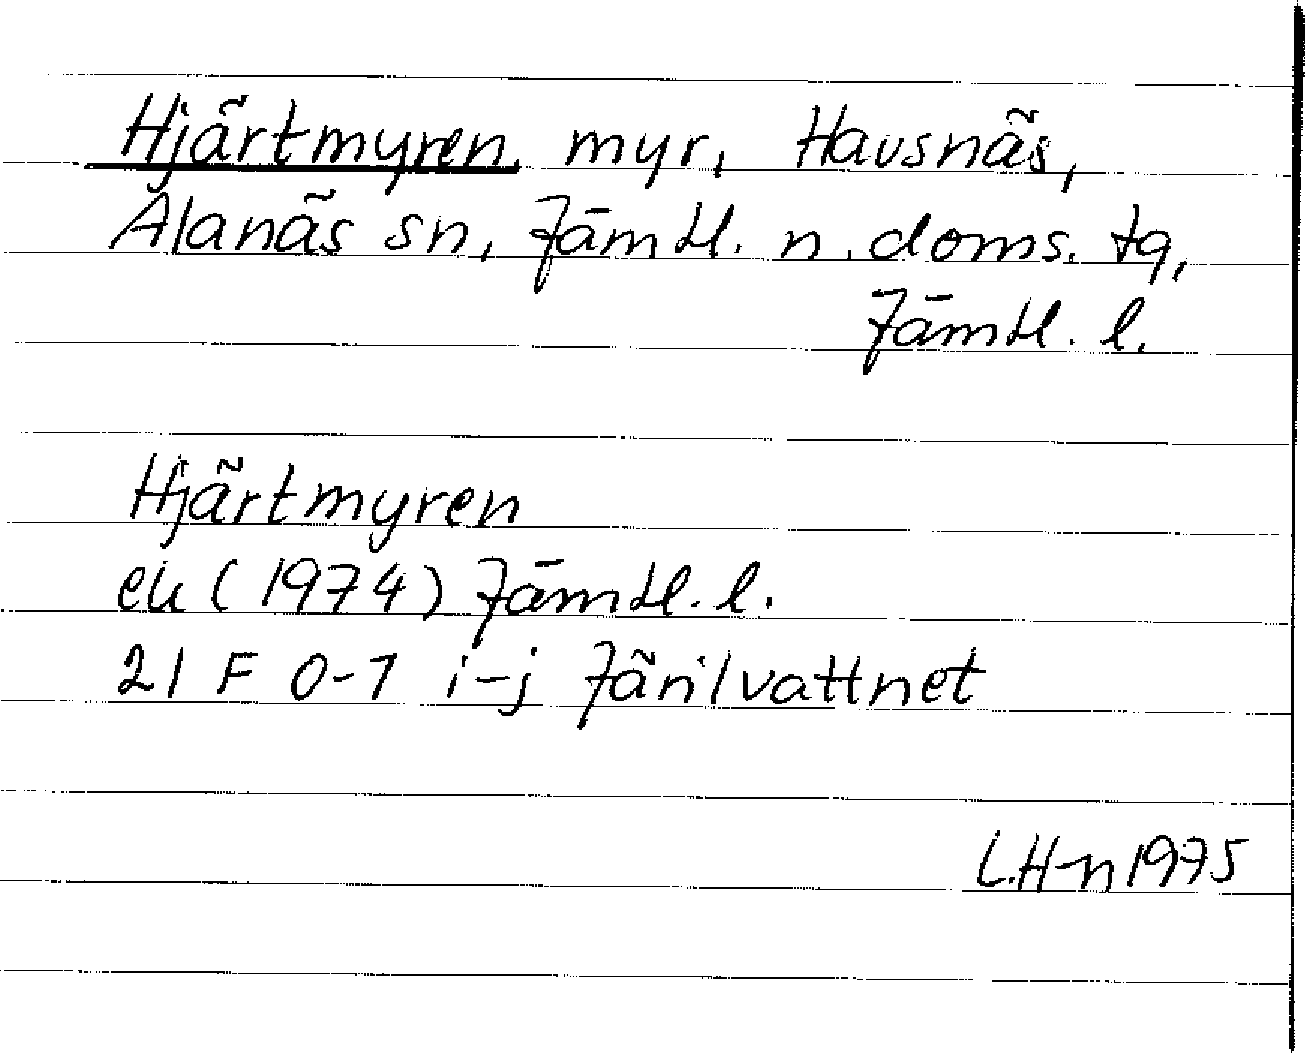 Hjärtmyren, myr, Havsnäs,
Alanäs sn, Jämtl. n. doms. tg,
Jämtl. l.
Hjärtmyren
ek (1974) Jämtl. l.
21 F 0-1 i-j Järilvattnet
L.H-n 1975